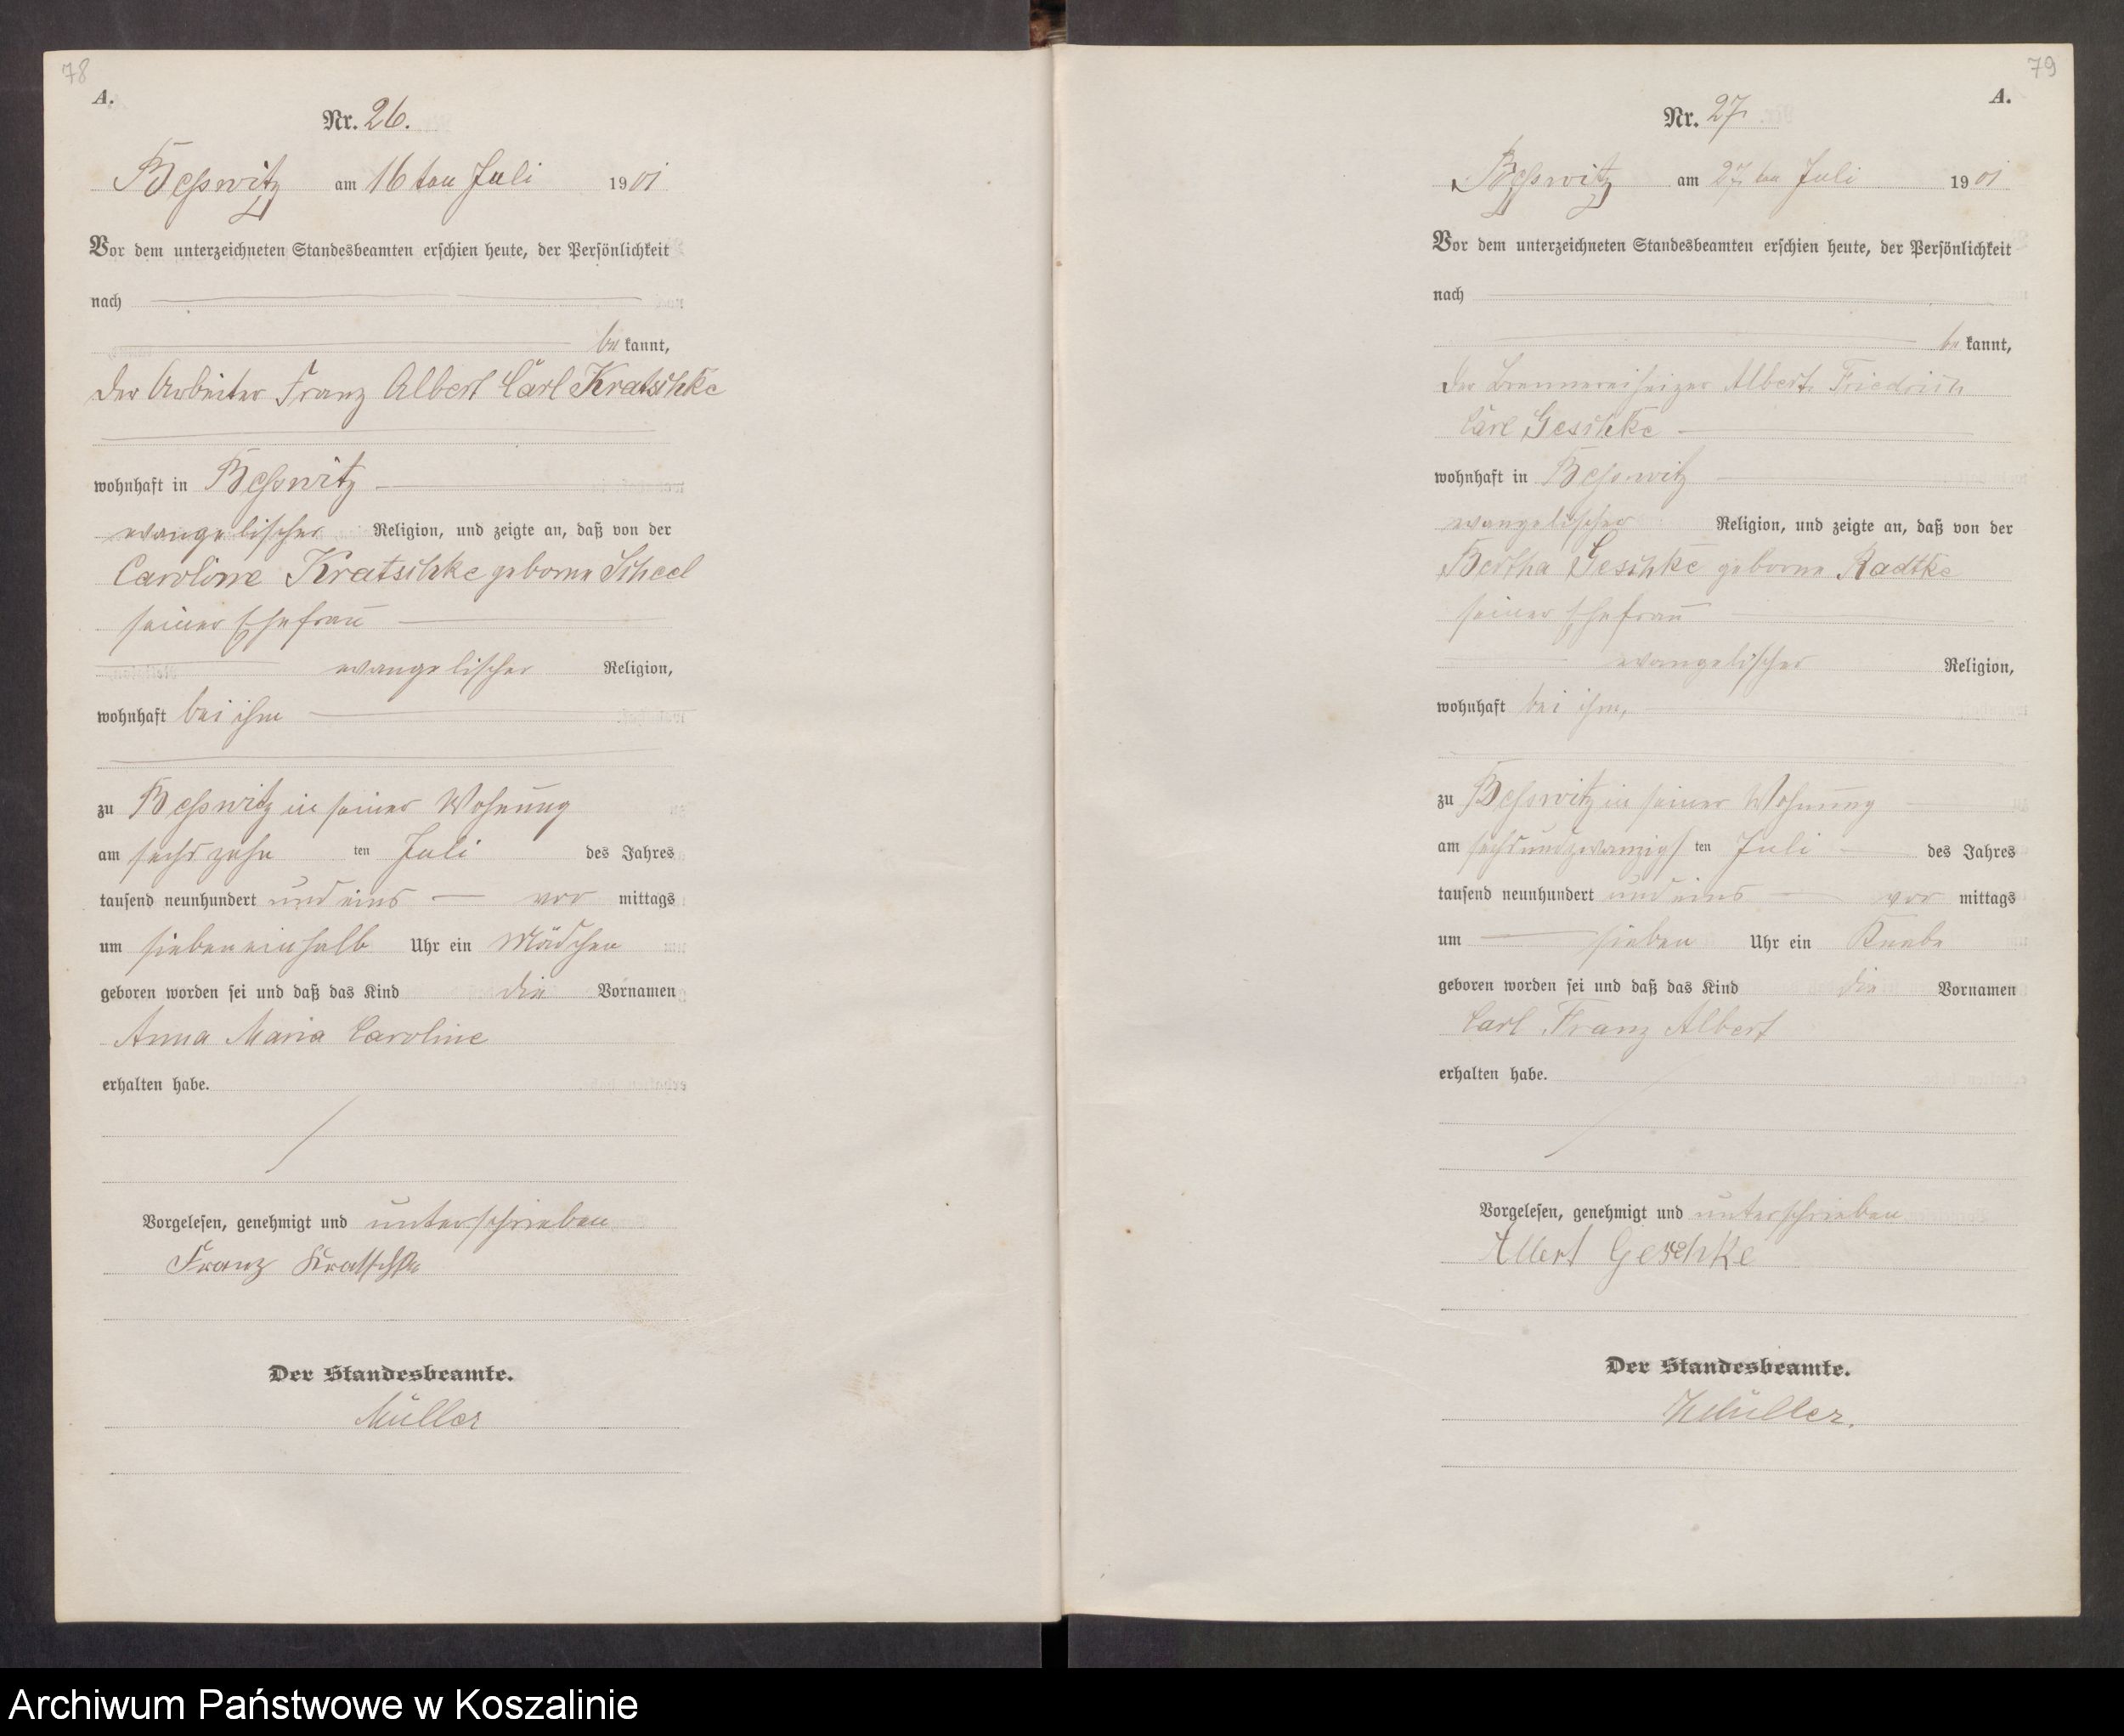 78
A.
Nr. 26.
Beßwitz am 16 ten Juli 1901
Vor dem unterzeichneten Standesbeamten erschien heute, der Persönlichkeit
nach
be kannt,
der Arbeiter Franz Albert Carl Kratschke
wohnhaft in Beßwitz
evangelischer Religion, und zeigte an, daß von der
Caroline Kratschke geborne Scheel
seiner Ehefrau
evangelischer Religion,
wohnhaft bei ihm
zu Beßwitz in seiner Wohnung
am sechszehn ten Juli des Jahres
tausend neunhundert und eins vor mittags
um sieben einhalb Uhr ein Mädchen
geboren worden sei und daß das Kind die Vornamen
Anna Maria Caroline
erhalten habe.
Vorgelesen, genehmigt und unterschrieben
Franz Kratschke
Der Standesbeamte.
Müller
79
A.
Nr. 27.
Beßwitz am 27 ten Juli 1901
Vor dem unterzeichneten Standesbeamten erschien heute, der Persönlichkeit
nach
be kannt,
der Brennereiheizer Albert Friedrich
Carl Geschke
wohnhaft in Beßwitz
evangelischer Religion, und zeigte an, daß von der
Bertha Geschke geborne Radtke
seiner Ehefrau
evangelischer Religion,
wohnhaft bei ihm,
zu Beßwitz in seiner Wohnung
am sechsundzwanzigs ten Juli des Jahres
tausend neunhundert und eins vor mittags
um sieben Uhr ein Knabe
geboren worden sei und daß das Kind die Vornamen
Carl Franz Albert
erhalten habe.
Vorgelesen, genehmigt und unterschrieben
Albert Geschke
Der Standesbeamte.
Müller.
Archiwum Państwowe w Koszalinie